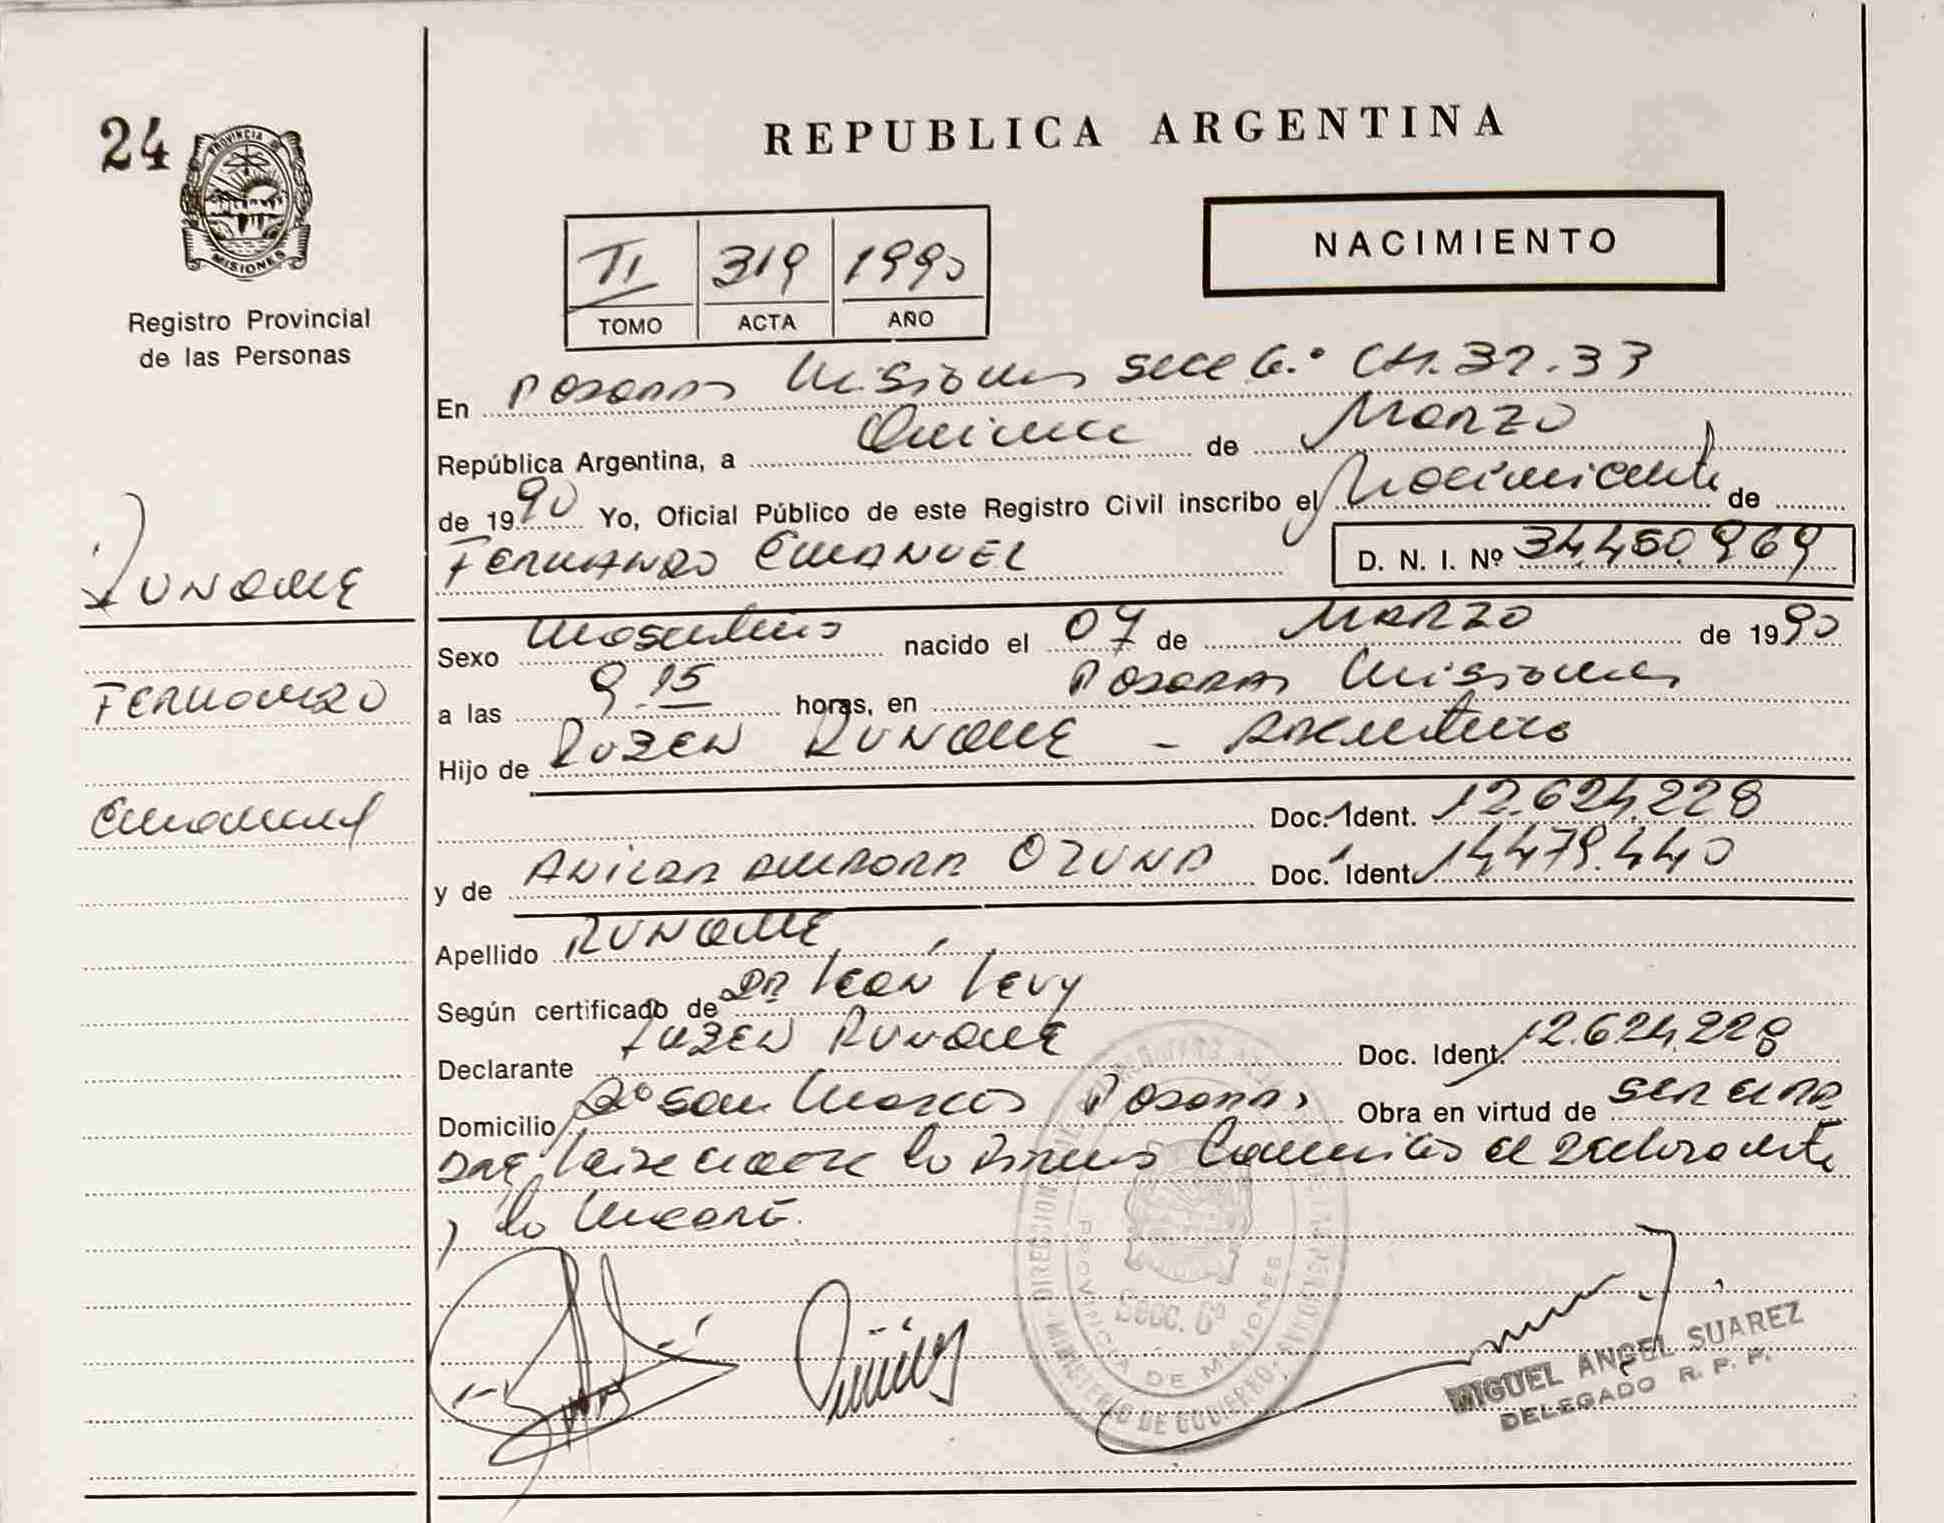 24
PROVINCIA DE
MISIONES
Registro Provincial
de las Personas
RUNQUE
FERNANDO
Emanuel
REPUBLICA ARGENTINA
NACIMIENTO
II 319 1990
TOMO ACTA AÑO
En Posadas Misiones Secc 6.° CH. 32.33
República Argentina, a Quince de Marzo
de 1990 Yo, Oficial Público de este Registro Civil inscribo el Nacimiento de
FERNANDO EMANUEL D. N. I. Nº 34.450.969
Sexo Masculino nacido el 07 de MARZO de 1990
a las 9.15 horas, en Posadas Misiones
Hijo de RUBEN RUNQUE - Argentino
Doc. Ident. 12.624.228
y de AURORA OZUNA Doc. Ident. 14.479.440
Apellido RUNQUE
Según certificado de DR León Levy
Declarante RUBEN RUNQUE Doc. Ident. 12.624.228
Domicilio Bº San Marcos Posadas Obra en virtud de SER EL PA
DRE el declarante
, lo
DIRECCION
PROVINCIA DE MISIONES
Secc. 6ª
MINISTERIO DE GOBIERNO
MIGUEL ANGEL SUAREZ
DELEGADO R. P. P.